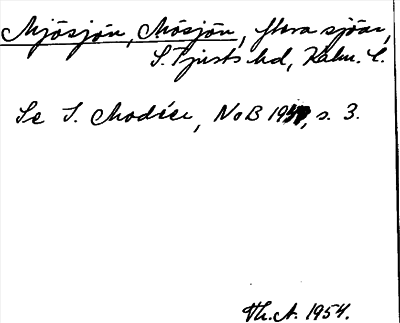 Mjösjön, Mösjön, flera sjöar,
S. Tjusts hd, Kalm. l.
Se I. Modéer, NoB 19, s. 3.
Th. A. 1954.